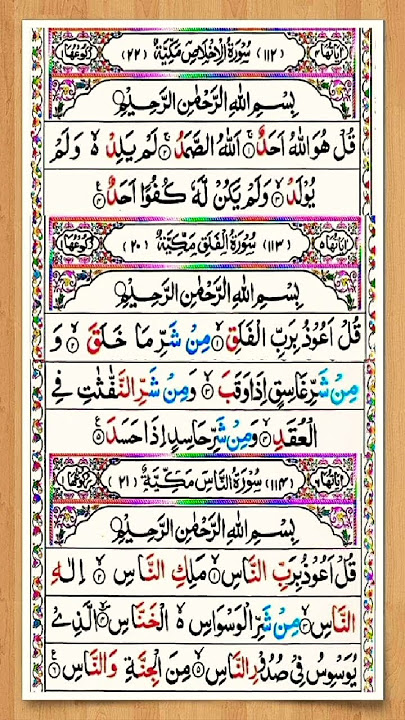 اٰيَاتُهَا ۴ (۱۱۲) سُوْرَةُ الْاِخْلَاصِ مَكِّيَّةٌ (۲۲) رُكُوْعُهَا ۱
بِسْمِ اللّٰهِ الرَّحْمٰنِ الرَّحِيْمِ
قُلْ هُوَ اللّٰهُ اَحَدٌ ۱ اَللّٰهُ الصَّمَدُ ۲ لَمْ يَلِدْ ە وَلَمْ
يُوْلَدْ ۳ وَلَمْ يَكُنْ لَّهٗ كُفُوًا اَحَدٌ ۴
اٰيَاتُهَا ۵ (۱۱۳) سُوْرَةُ الْفَلَقِ مَكِّيَّةٌ (۲۰) رُكُوْعُهَا ۱
بِسْمِ اللّٰهِ الرَّحْمٰنِ الرَّحِيْمِ
قُلْ اَعُوْذُ بِرَبِّ الْفَلَقِ ۱ مِنْ شَرِّ مَا خَلَقَ ۲ وَ
مِنْ شَرِّ غَاسِقٍ اِذَا وَقَبَ ۳ وَمِنْ شَرِّ النَّفّٰثٰتِ فِي
الْعُقَدِ ۴ وَمِنْ شَرِّ حَاسِدٍ اِذَا حَسَدَ ۵
اٰيَاتُهَا ۶ (۱۱۴) سُوْرَةُ النَّاسِ مَكِّيَّةٌ (۲۱) رُكُوْعُهَا ۱
بِسْمِ اللّٰهِ الرَّحْمٰنِ الرَّحِيْمِ
قُلْ اَعُوْذُ بِرَبِّ النَّاسِ ۱ مَلِكِ النَّاسِ ۲ اِلٰهِ
النَّاسِ ۳ مِنْ شَرِّ الْوَسْوَاسِ ە الْخَنَّاسِ ۴ الَّذِيْ
يُوَسْوِسُ فِيْ صُدُوْرِ النَّاسِ ۵ مِنَ الْجِنَّةِ وَالنَّاسِ ۶